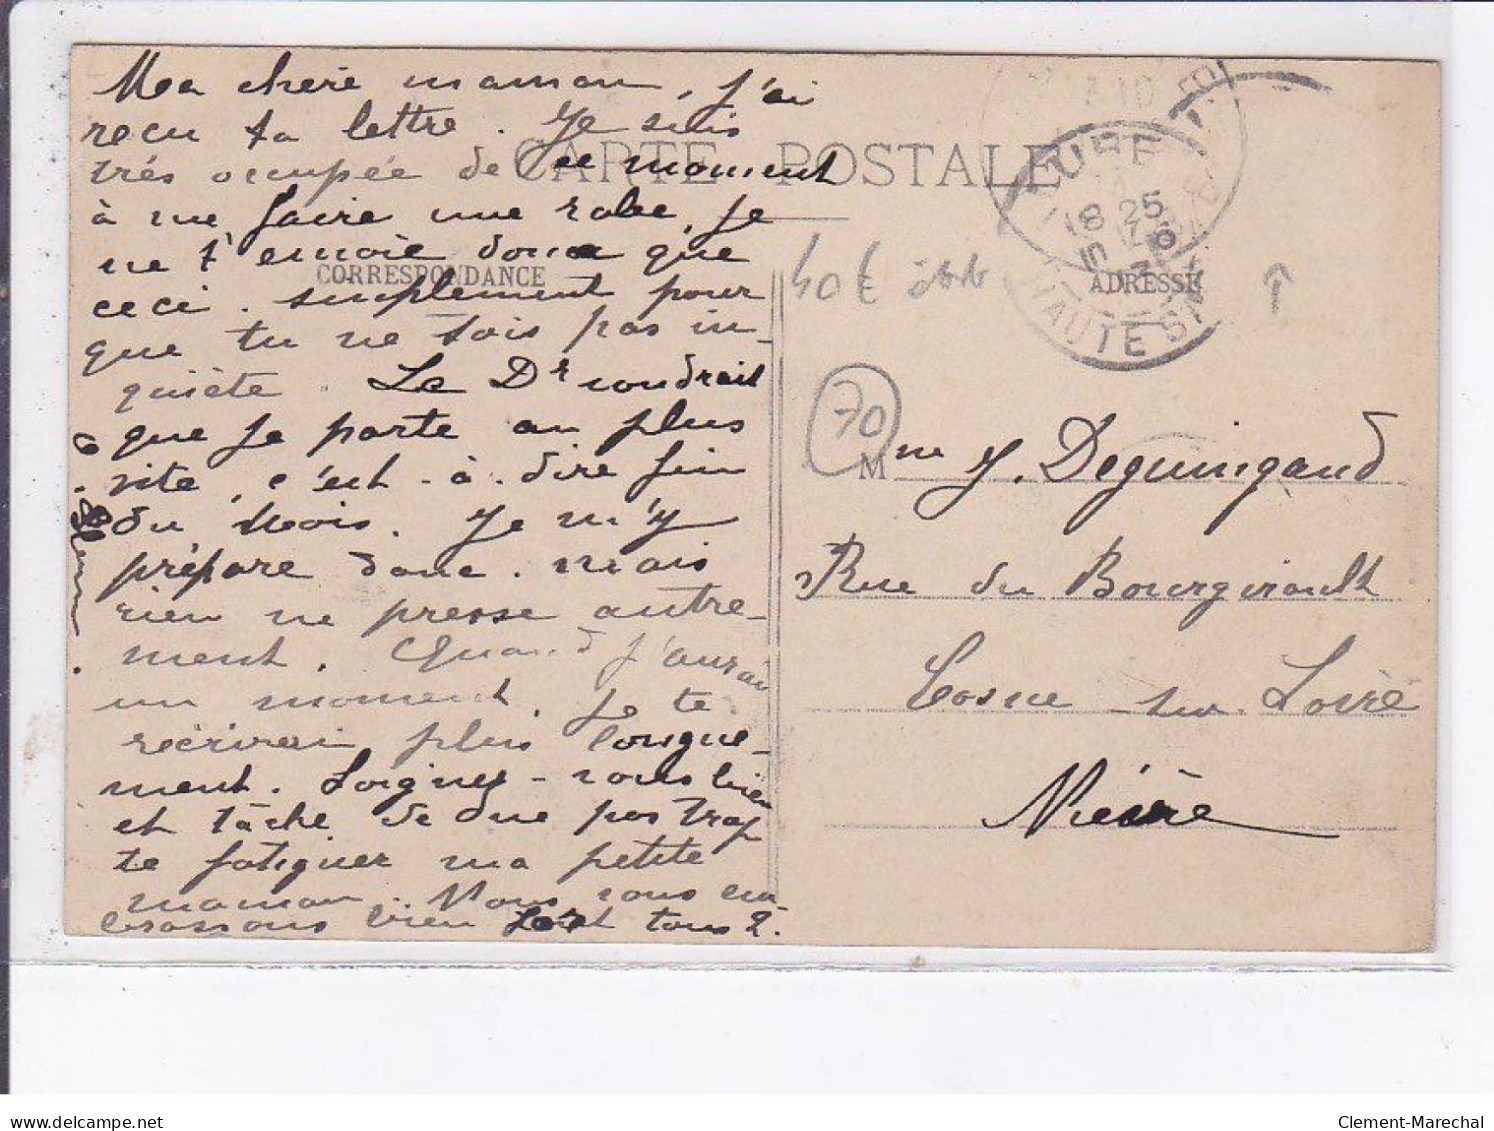 Ma chère maman, j'ai
reçu ta lettre. Je suis
très occupée de ce moment
à me faire une robe, je
ne t'envoie donc que
ceci. simplement pour
que tu ne sois pas in-
quiète. Le Dr voudrait
que je parte au plus
vite, c'est-à-dire fin
du Mois. Je m'y
prépare donc. mais
rien ne presse autre-
ment. Quand j'aurai
un moment, je te
récrirai plus longue-
ment. Soignez-vous bien
et tâche de ne pas trop
te fatiguer ma petite
maman. Nous vous em-
brassons bien fort tous 2.
CARTE POSTALE
CORRESPONDANCE
ADRESSE
HAUTE
18 25
40 €
70
Mme J. Deguingand
Rue du Bourgirault
Cosne sur Loire
Nièvre
delcampe.net
Clement-Marechal